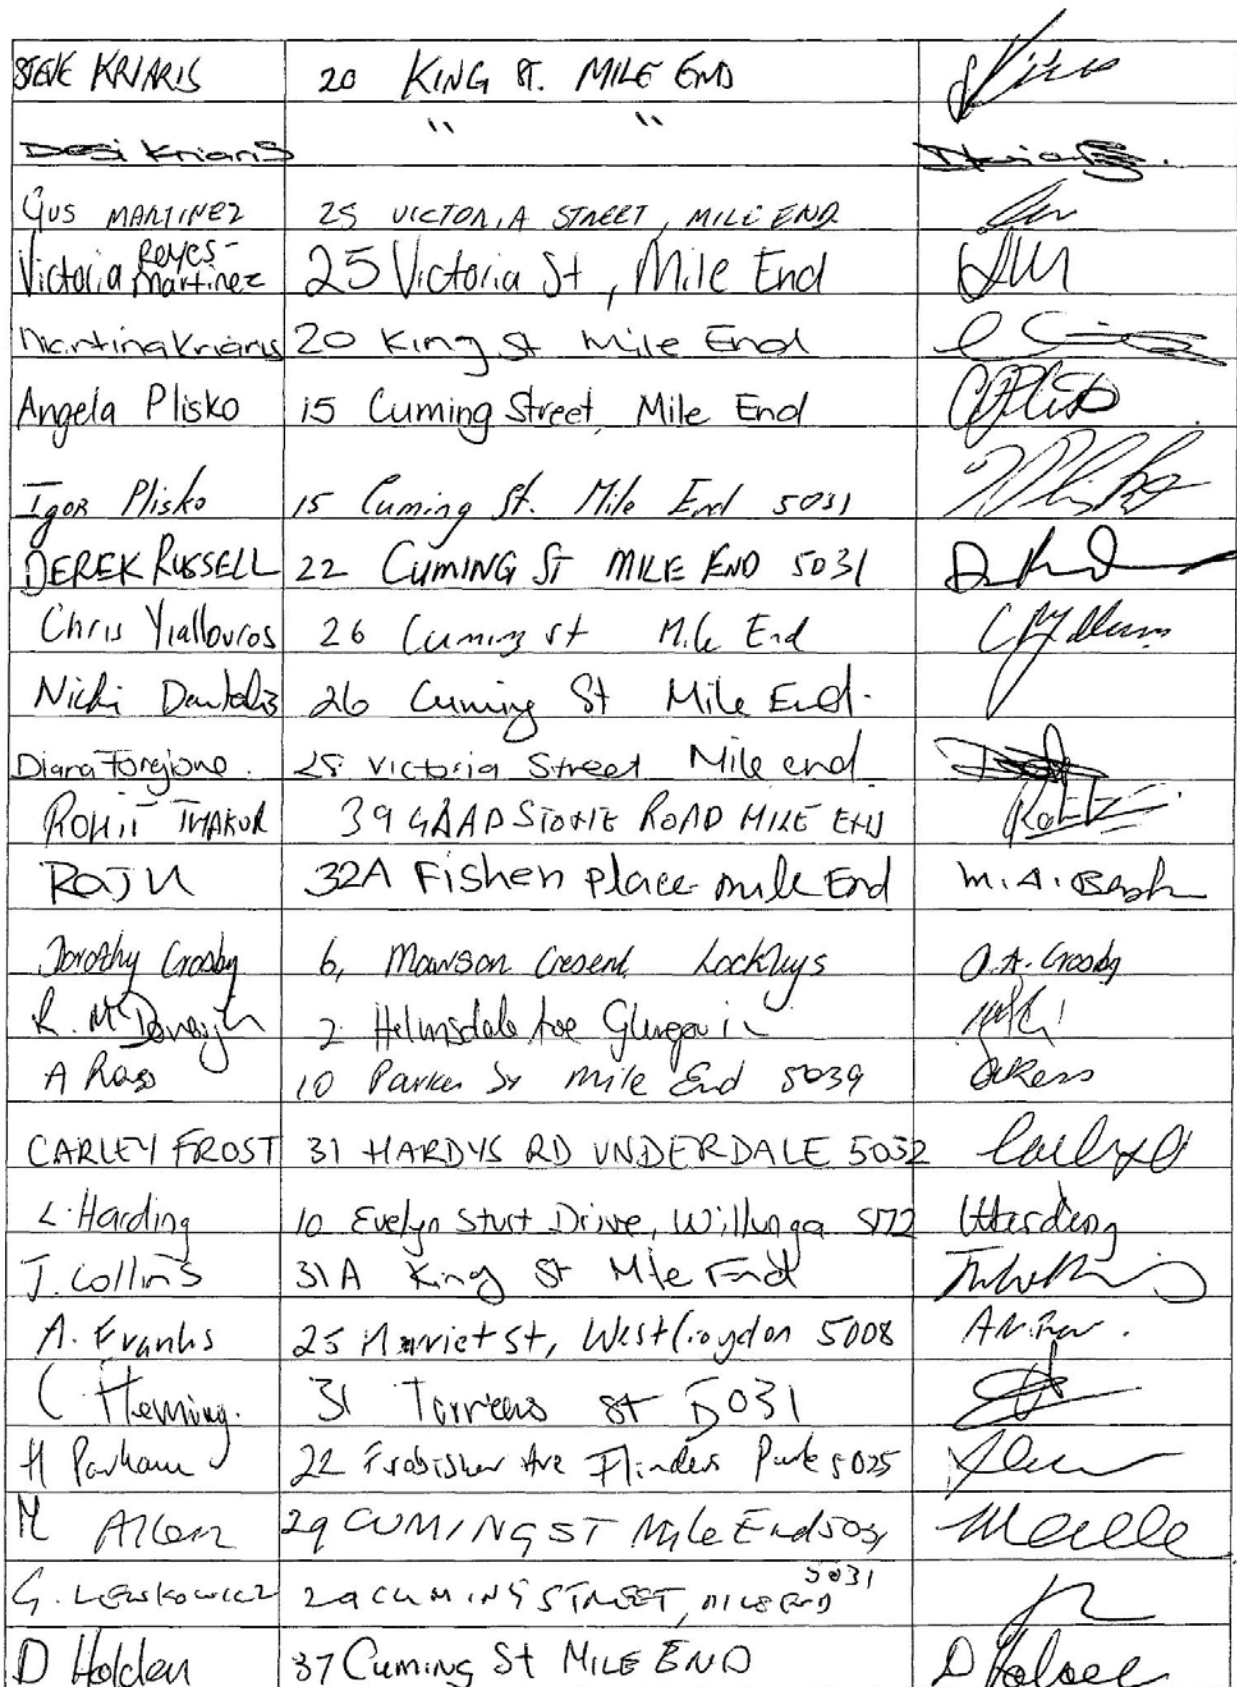 STEVE KRIARIS 20 KING ST. MILE END
Desi Kriaris " "
Gus MARTINEZ 25 VICTORIA STREET, MILE END
Victoria Reyes-Martinez 25 Victoria St, Mile End
Martina Kriaris 20 King St Mile End
Angela Plisko 15 Cuming Street, Mile End
Igor Plisko 15 Cuming St. Mile End 5031
DEREK RUSSELL 22 CUMING ST MILE END 5031
Chris Yiallouros 26 Cuming st Mile End
Nicki Dantalis 26 Cuming St Mile End.
Diana Forgione. 28 Victoria Street Mile end
ROHIT THAKUR 39 GLADSTONE ROAD MILE END
RAJU 32A Fisher place mile End M.A.
Dorothy Crosby 6, Mawson Cresent, Lockleys D.A. Crosby
R. McDonagh 2 Helmsdale Ave
A Ross 10 Parker St Mile End 5039
CARLEY FROST 31 HARDYS RD UNDERDALE 5032
L. Harding 10 Evelyn Sturt Drive, Willunga 5172 LHarding
J. Collins 31A King St Mile End
A. Franks 25 Harriet St, West Croydon 5008
C Fleming. 31 Torrens St 5031
H Parham 22 Frobisher Ave Flinders Park 5025
M Allen 29 CUMING ST Mile End 5031
G. Lewkowicz 29 CUMING STREET, MILE END 5031
D Holden 37 Cuming St MILE END D Holden